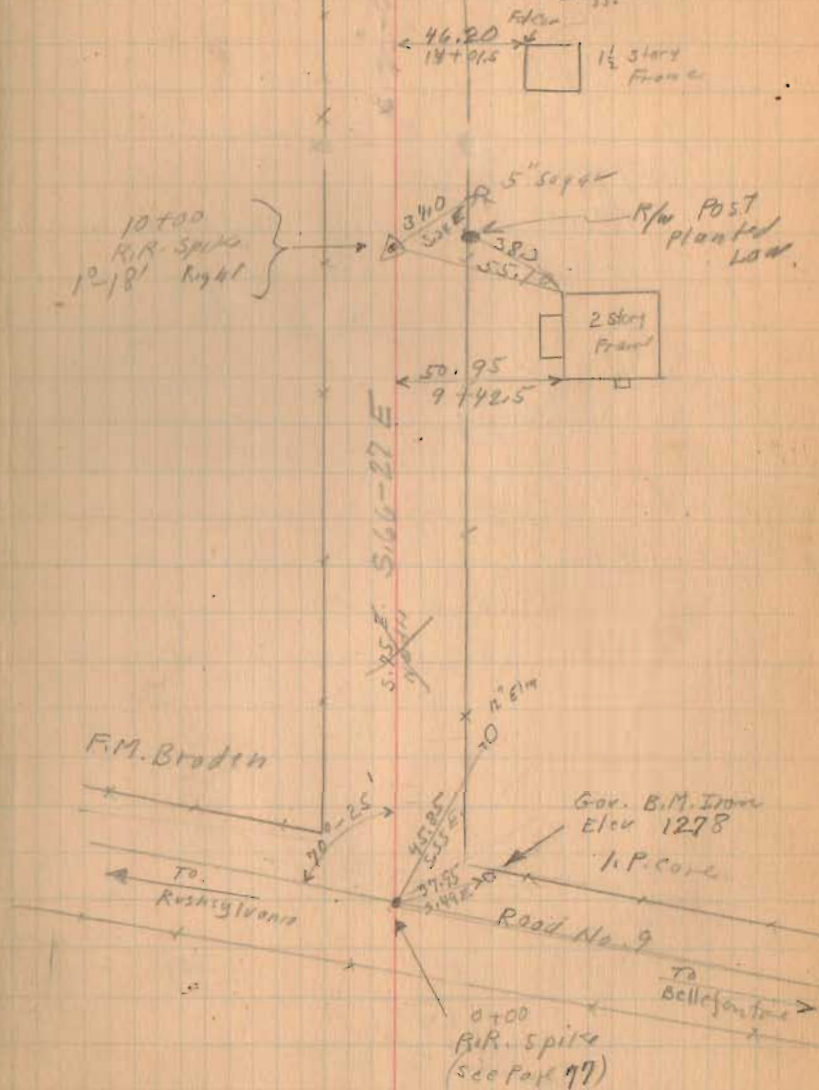 46.20
14+01.5
1½ Story
Frame
5" Sugar
34.0
10+00
R.R. Spike
1°-18' Right
R/W Post
Planted
Low
38.3
2 Story
Frame
50.95
9+42.5
S.66-27 E
12" Elm
F.M. Braden
70°-25'
45.85
S.55 E.
Gov. B.M. Iron
Elev 1278
37.95
S.49 E
To
Rushsylvania
Road No. 9
To
Bellefontaine
0+00
R.R. Spike
(See Page 77)